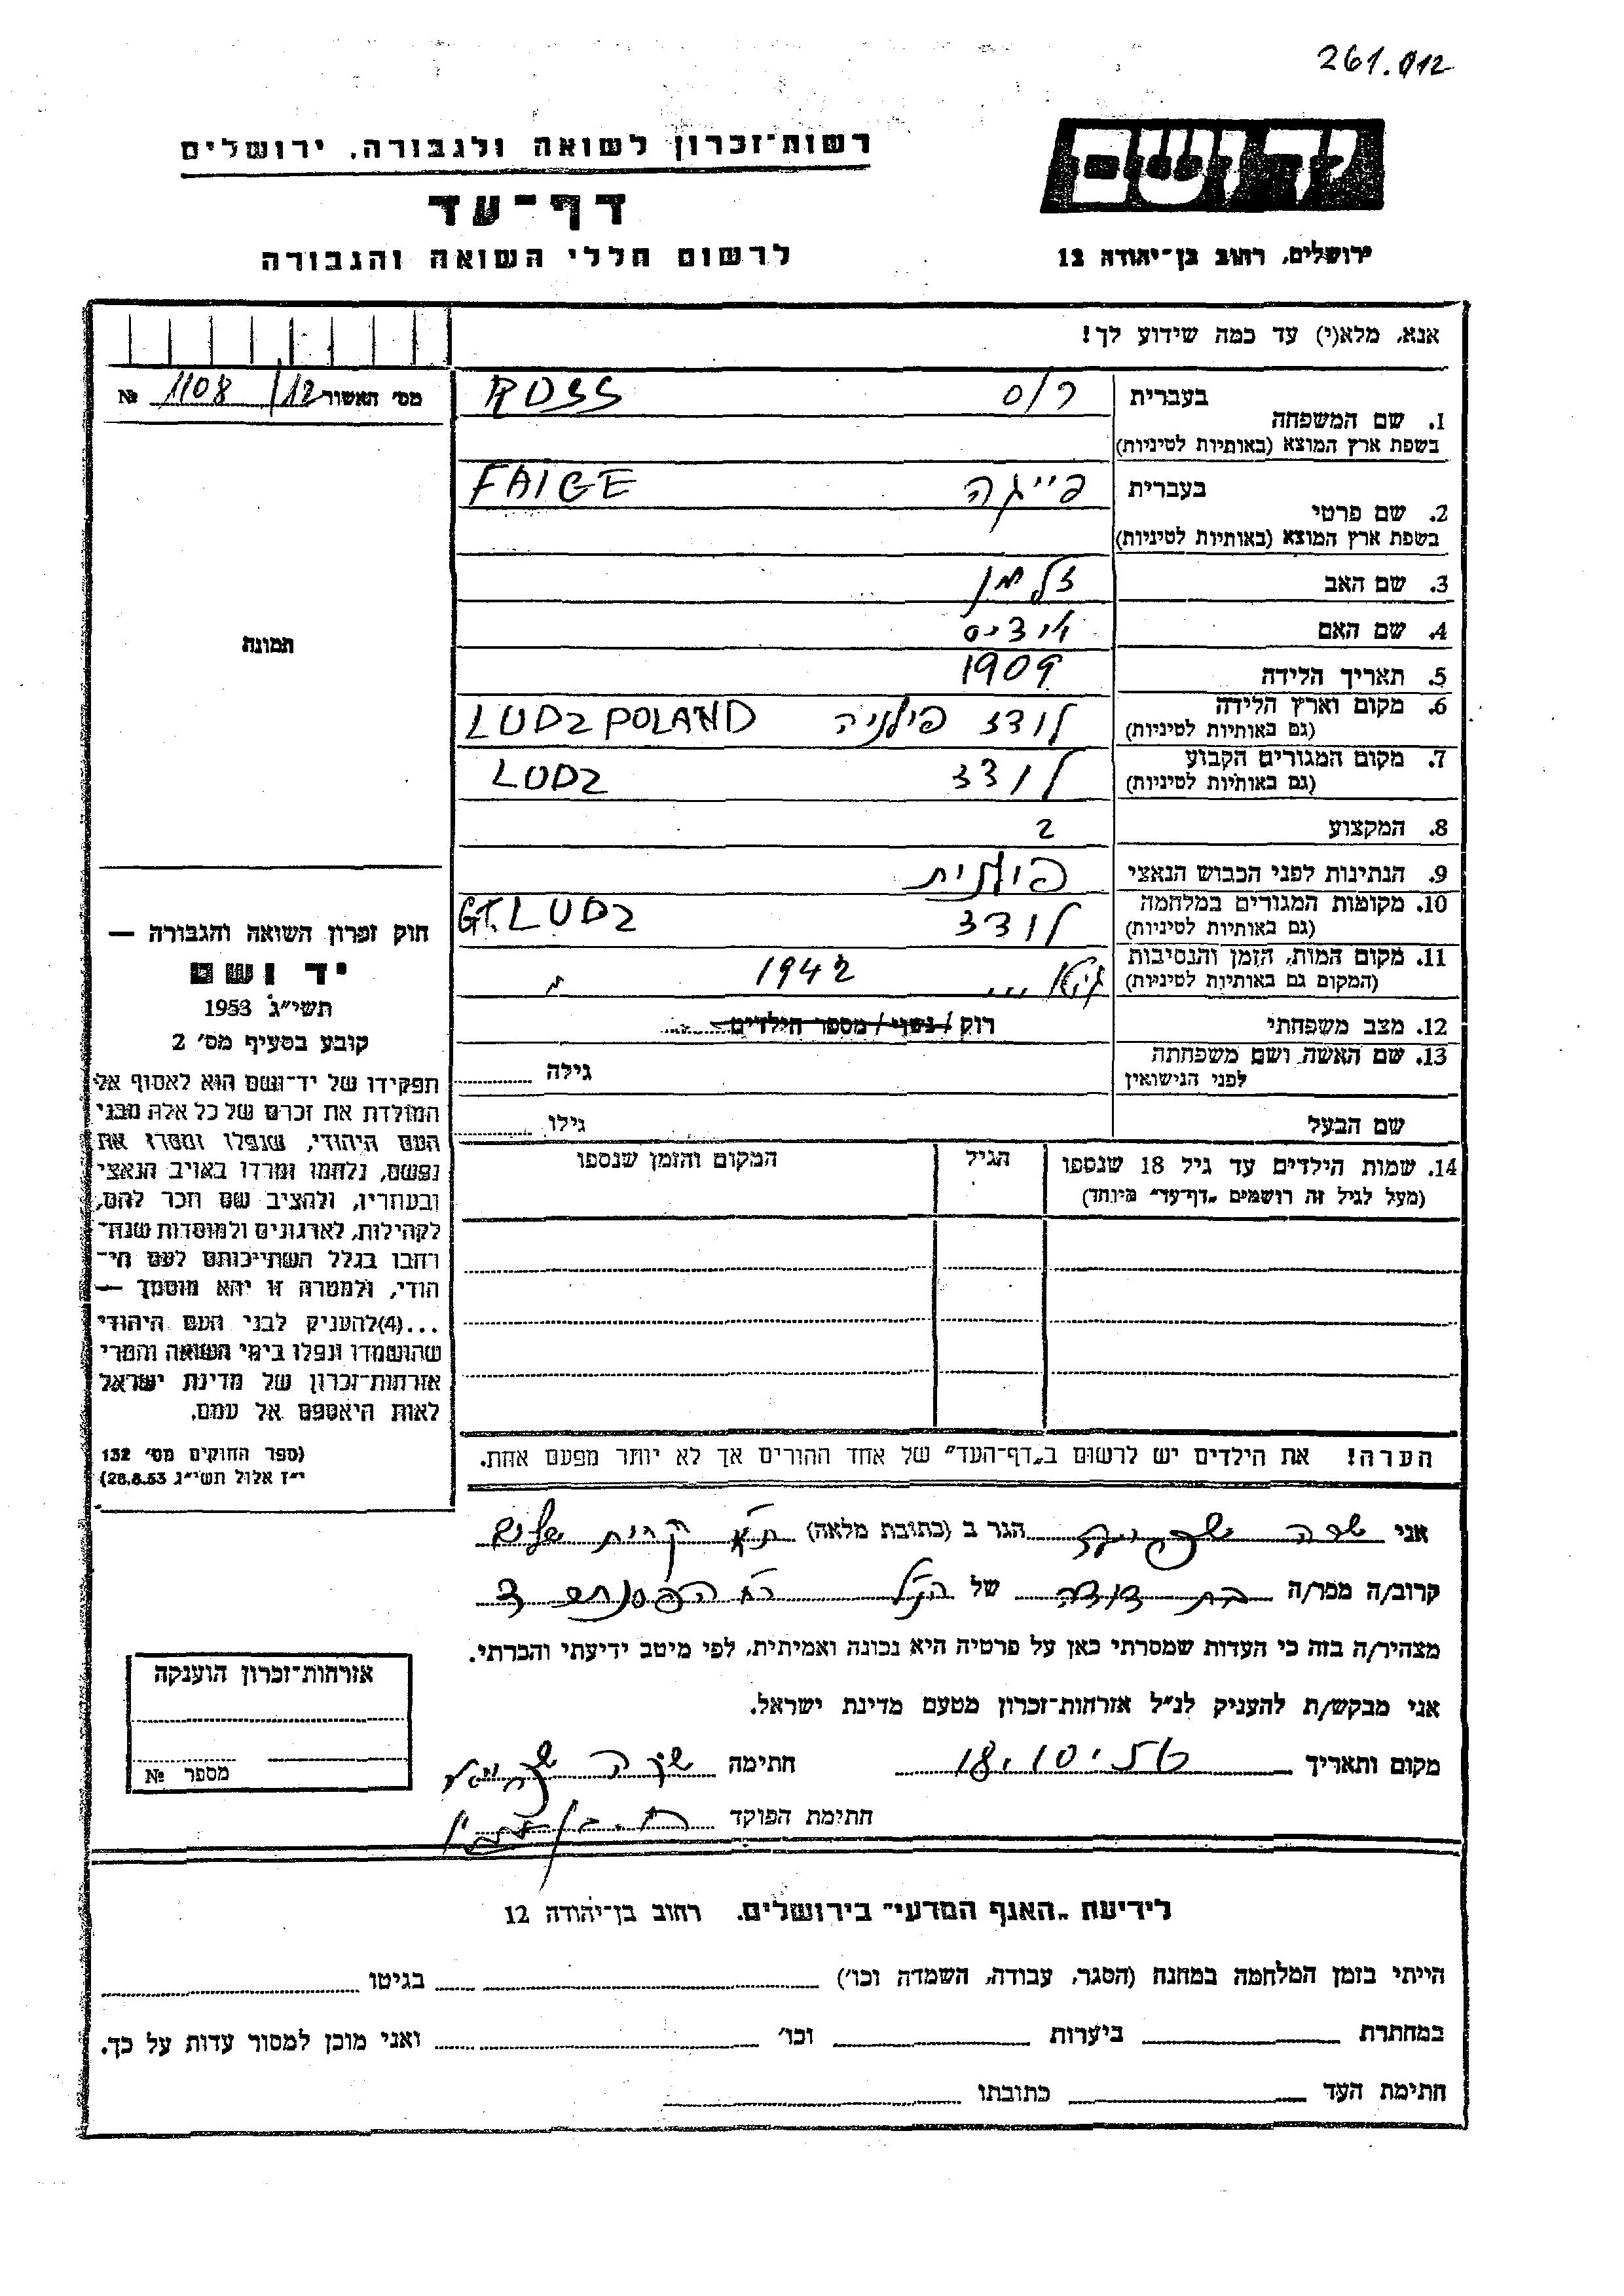 261.012
יד ושם
רשות־זכרון לשואה ולגבורה, ירושלים
דף־עד
לרשום חללי השואה והגבורה
ירושלים, רחוב בן־יהודה 12
אנא, מלא(י) עד כמה שידוע לך!
מס׳ האשור 12/ 1108 №
1. שם המשפחה
בעברית רוס ROSS
בשפת ארץ המוצא (באותיות לטיניות)
2. שם פרטי
בעברית פייגה FAIGE
בשפת ארץ המוצא (באותיות לטיניות)
3. שם האב זלמן
4. שם האם
5. תאריך הלידה 1909
6. מקום וארץ הלידה
(גם באותיות לטיניות) לודז פולניה LUDZ POLAND
7. מקום המגורים הקבוע
(גם באותיות לטיניות) לודז LUDZ
8. המקצוע
9. הנתינות לפני הכבוש הנאצי פולנית
10. מקומות המגורים במלחמה
(גם באותיות לטיניות) לודז GT.LUDZ
11. מקום המות, הזמן והנסיבות
(המקום גם באותיות לטיניות) 1942
12. מצב משפחתי רוק / נשוי / מספר הילדים
13. שם האשה ושם משפחתה
לפני הנישואין גילה
שם הבעל גילו
14. שמות הילדים עד גיל 18 שנספו
(מעל לגיל זה רושמים „דף־עד״ מיוחד)
הגיל
המקום והזמן שנספו
הערה! את הילדים יש לרשום ב„דף־העד״ של אחד ההורים אך לא יותר מפעם אחת.
תמונה
חוק זכרון השואה והגבורה —
יד ושם
תשי״ג 1953
קובע בסעיף מס׳ 2
תפקידו של יד־ושם הוא לאסוף אל
המולדת את זכרם של כל אלה מבני
העם היהודי, שנפלו ומסרו את
נפשם, נלחמו ומרדו באויב הנאצי
ובעוזריו, ולהציב שם וזכר להם,
לקהילות, לארגונים ולמוסדות שנח־
רבו בגלל השתייכותם לעם הי־
הודי, ולמטרה זו יהא מוסמך —
...(4)להעניק לבני העם היהודי
שהושמדו ונפלו בימי השואה והמרי
אזרחות־זכרון של מדינת ישראל
לאות היאספם אל עמם.
(ספר החוקים מס׳ 132
י״ז אלול תשי״ג 28.8.53)
אני שרה הגר ב (כתובת מלאה) ת״א קרית שלום
קרוב/ה מכר/ה בת דודה של הנ״ל
מצהיר/ה בזה כי העדות שמסרתי כאן על פרטיה היא נכונה ואמיתית, לפי מיטב ידיעתי והכרתי.
אני מבקש/ת להעניק לנ״ל אזרחות־זכרון מטעם מדינת ישראל.
מקום ותאריך 18.10. חתימה שרה
חתימת הפוקד
אזרחות־זכרון הוענקה
מספר №
לידיעת „האגף המדעי״ בירושלים. רחוב בן־יהודה 12
הייתי בזמן המלחמה במחנה (הסגר, עבודה, השמדה וכו׳) בגיטו
במחתרת ביערות וכו׳ ואני מוכן למסור עדות על כך.
חתימת העד כתובתו